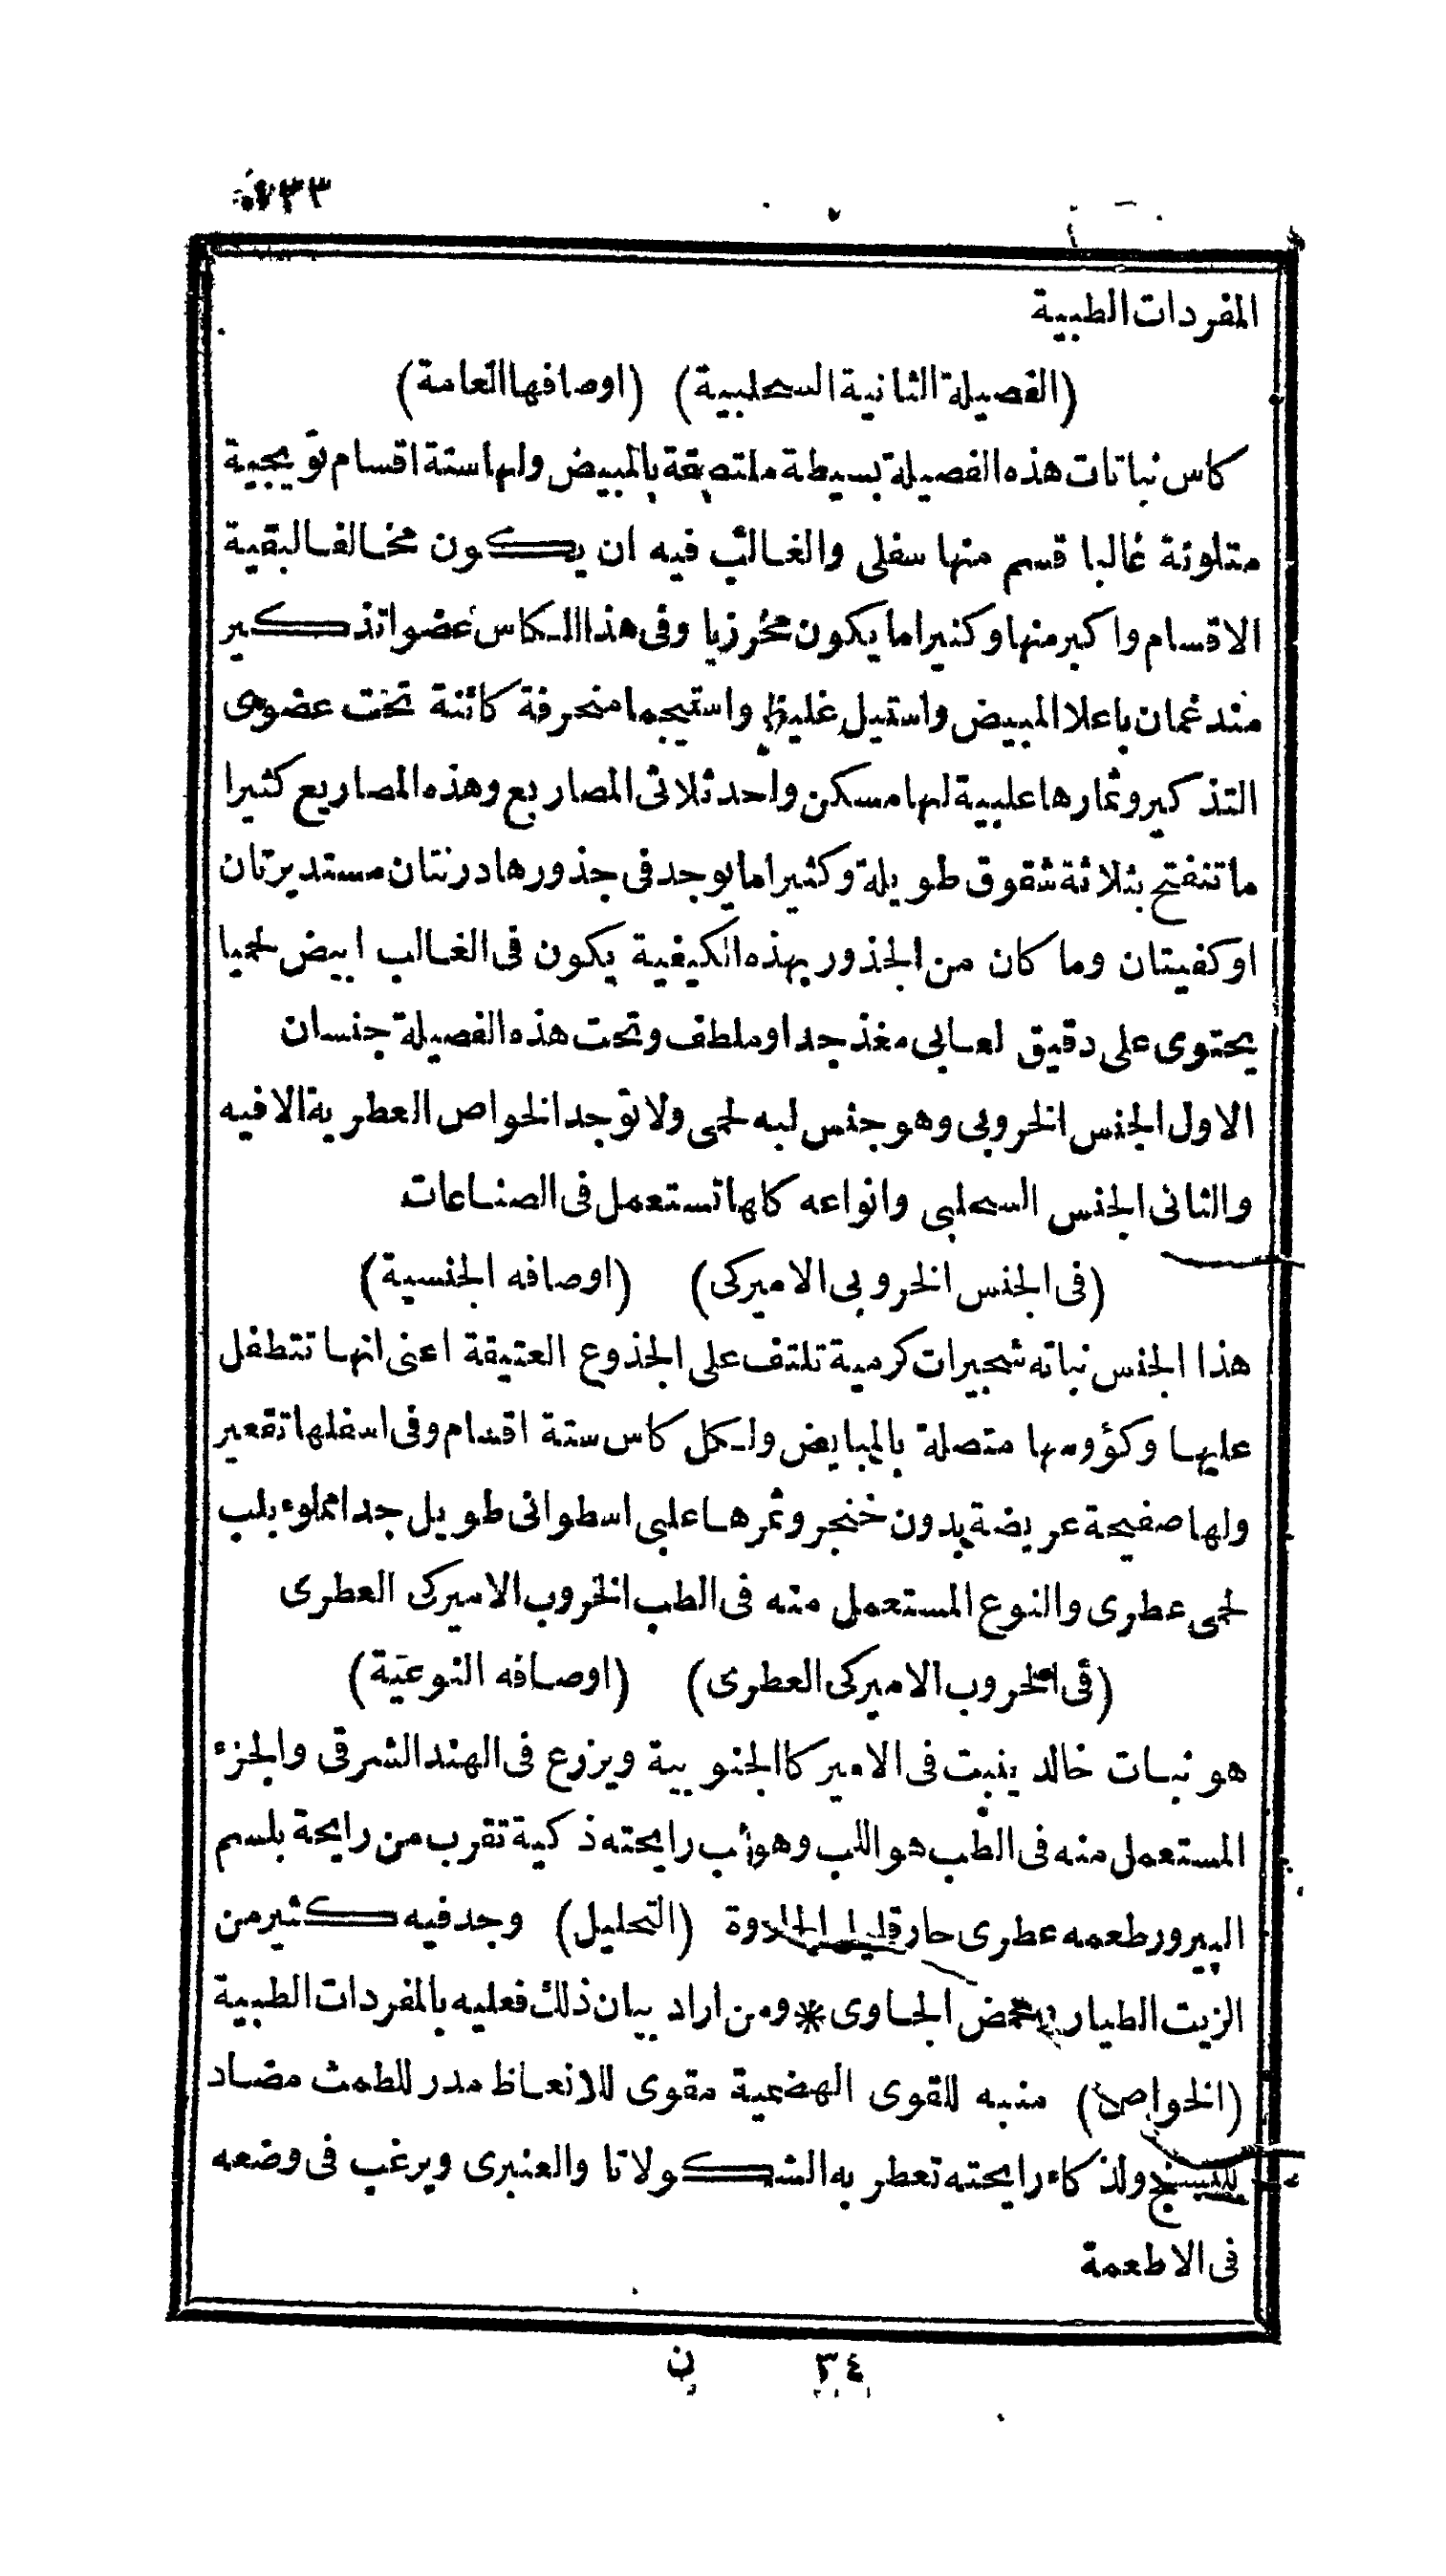 المفردات الطبية
(الفصيلة الثانية السحلبية) (اوصافها العامة)
كاس نباتات هذه الفصيلة بسيطة ملتصقة بالمبيض ولها ستة اقسام تويجية
متلونة غالبا قسم منها سفلى والغالب فيه ان يكون مخالفا لبقية
الاقسام واكبر منها وكثيرا ما يكون مخرزيا وفى هذا الكاس عضوا تذكير
مندغمان باعلا المبيض واستيل غليظ واستيجما منحرفة كائنة تحت عضوى
التذكير وثمارها علبية لها مسكن واحد ثلاثى المصاريع وهذه المصاريع كثيرا
ما تنفتح بثلاثة شقوق طويلة وكثيرا ما يوجد فى جذورها درنتان مستديرتان
او كفيتان وما كان من الجذور بهذه الكيفية يكون فى الغالب ابيض لحميا
يحتوى على دقيق لعابى مغذ جدا وملطف وتحت هذه الفصيلة جنسان
الاول الجنس الخروبى وهو جنس لبه لحمى ولا توجد الخواص العطرية الا فيه
والثانى الجنس السحلبى وانواعه كلها تستعمل فى الصناعات
(فى الجنس الخروبى الاميركى) (اوصافه الجنسية)
هذا الجنس نباته شجيرات كرمية تلتف على الجذوع العتيقة اعنى انها تتطفل
عليها وكؤوسها متصلة بالمبايض ولكل كاس ستة اقسام وفى اسفلها تقعير
ولها صفيحة عريضة بدون خنجر وثمرها علبى اسطوانى طويل جدا مملوء بلب
لحمى عطرى والنوع المستعمل منه فى الطب الخروب الاميركى العطرى
(فى الخروب الاميركى العطرى) (اوصافه النوعية)
هو نبات خالد ينبت فى الاميركا الجنوبية ويزرع فى الهند الشرقى والجزء
المستعمل منه فى الطب هو اللب وهو لب رايحته ذكية تقرب من رايحة بلسم
البيرور طعمه عطرى حار قليل الحلاوة (التحليل) وجد فيه كثير من
الزيت الطيار وحمض الجاوى * ومن اراد بيان ذلك فعليه بالمفردات الطبية
(الخواص) منبه للقوى الهضمية مقوى للانعاظ مدر للطمث مضاد
للتشنج ولذكاء رايحته تعطر به الشكولاتا والعنبرى ويرغب فى وضعه
فى الاطعمة
٣٤ ن